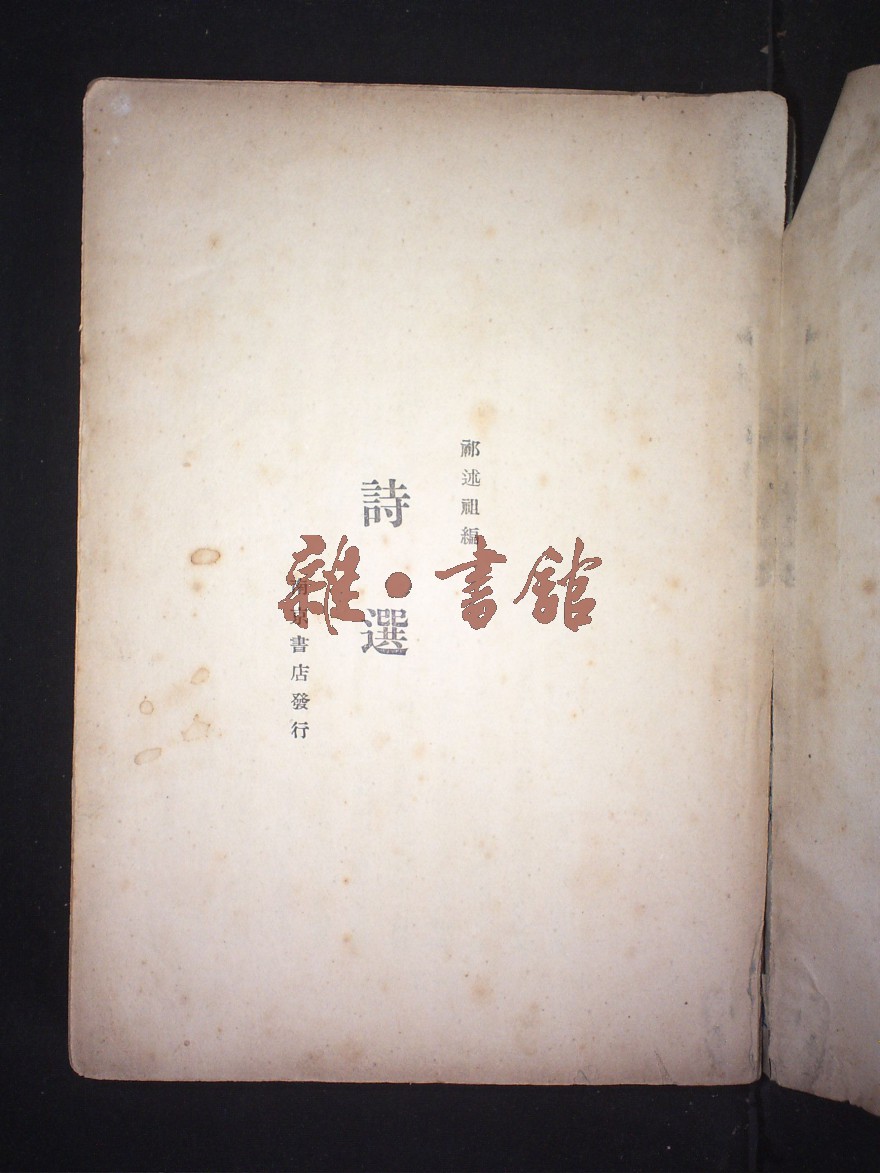 祁述祖編
詩選
南京書店發行
雜·書館